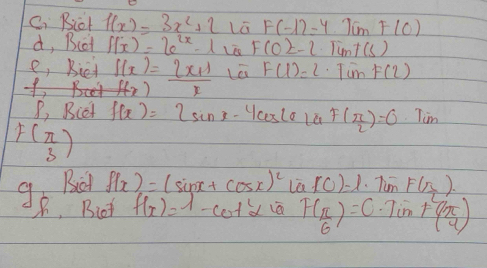 c, Biết f(x) = 3x²+2 và F(-1)=4 Tìm F(0)
d, Biết f(x) = 2e²ˣ - 1 và F(0)=2. Tìm
e, Biết f(x) = 2x+1/x và F(1)=2. Tìm F(2)
f, Biết f(x)
f, Biết f(x) = 2sinx - 4cos và F(π/2)=0. Tìm
F(π/3)
g, Biết f(x) = (sinx + cosx)² và F(0)=1. Tìm
h, Biết f(x) = 1 - cot² và F(π/6)=0. Tìm F(π/4)